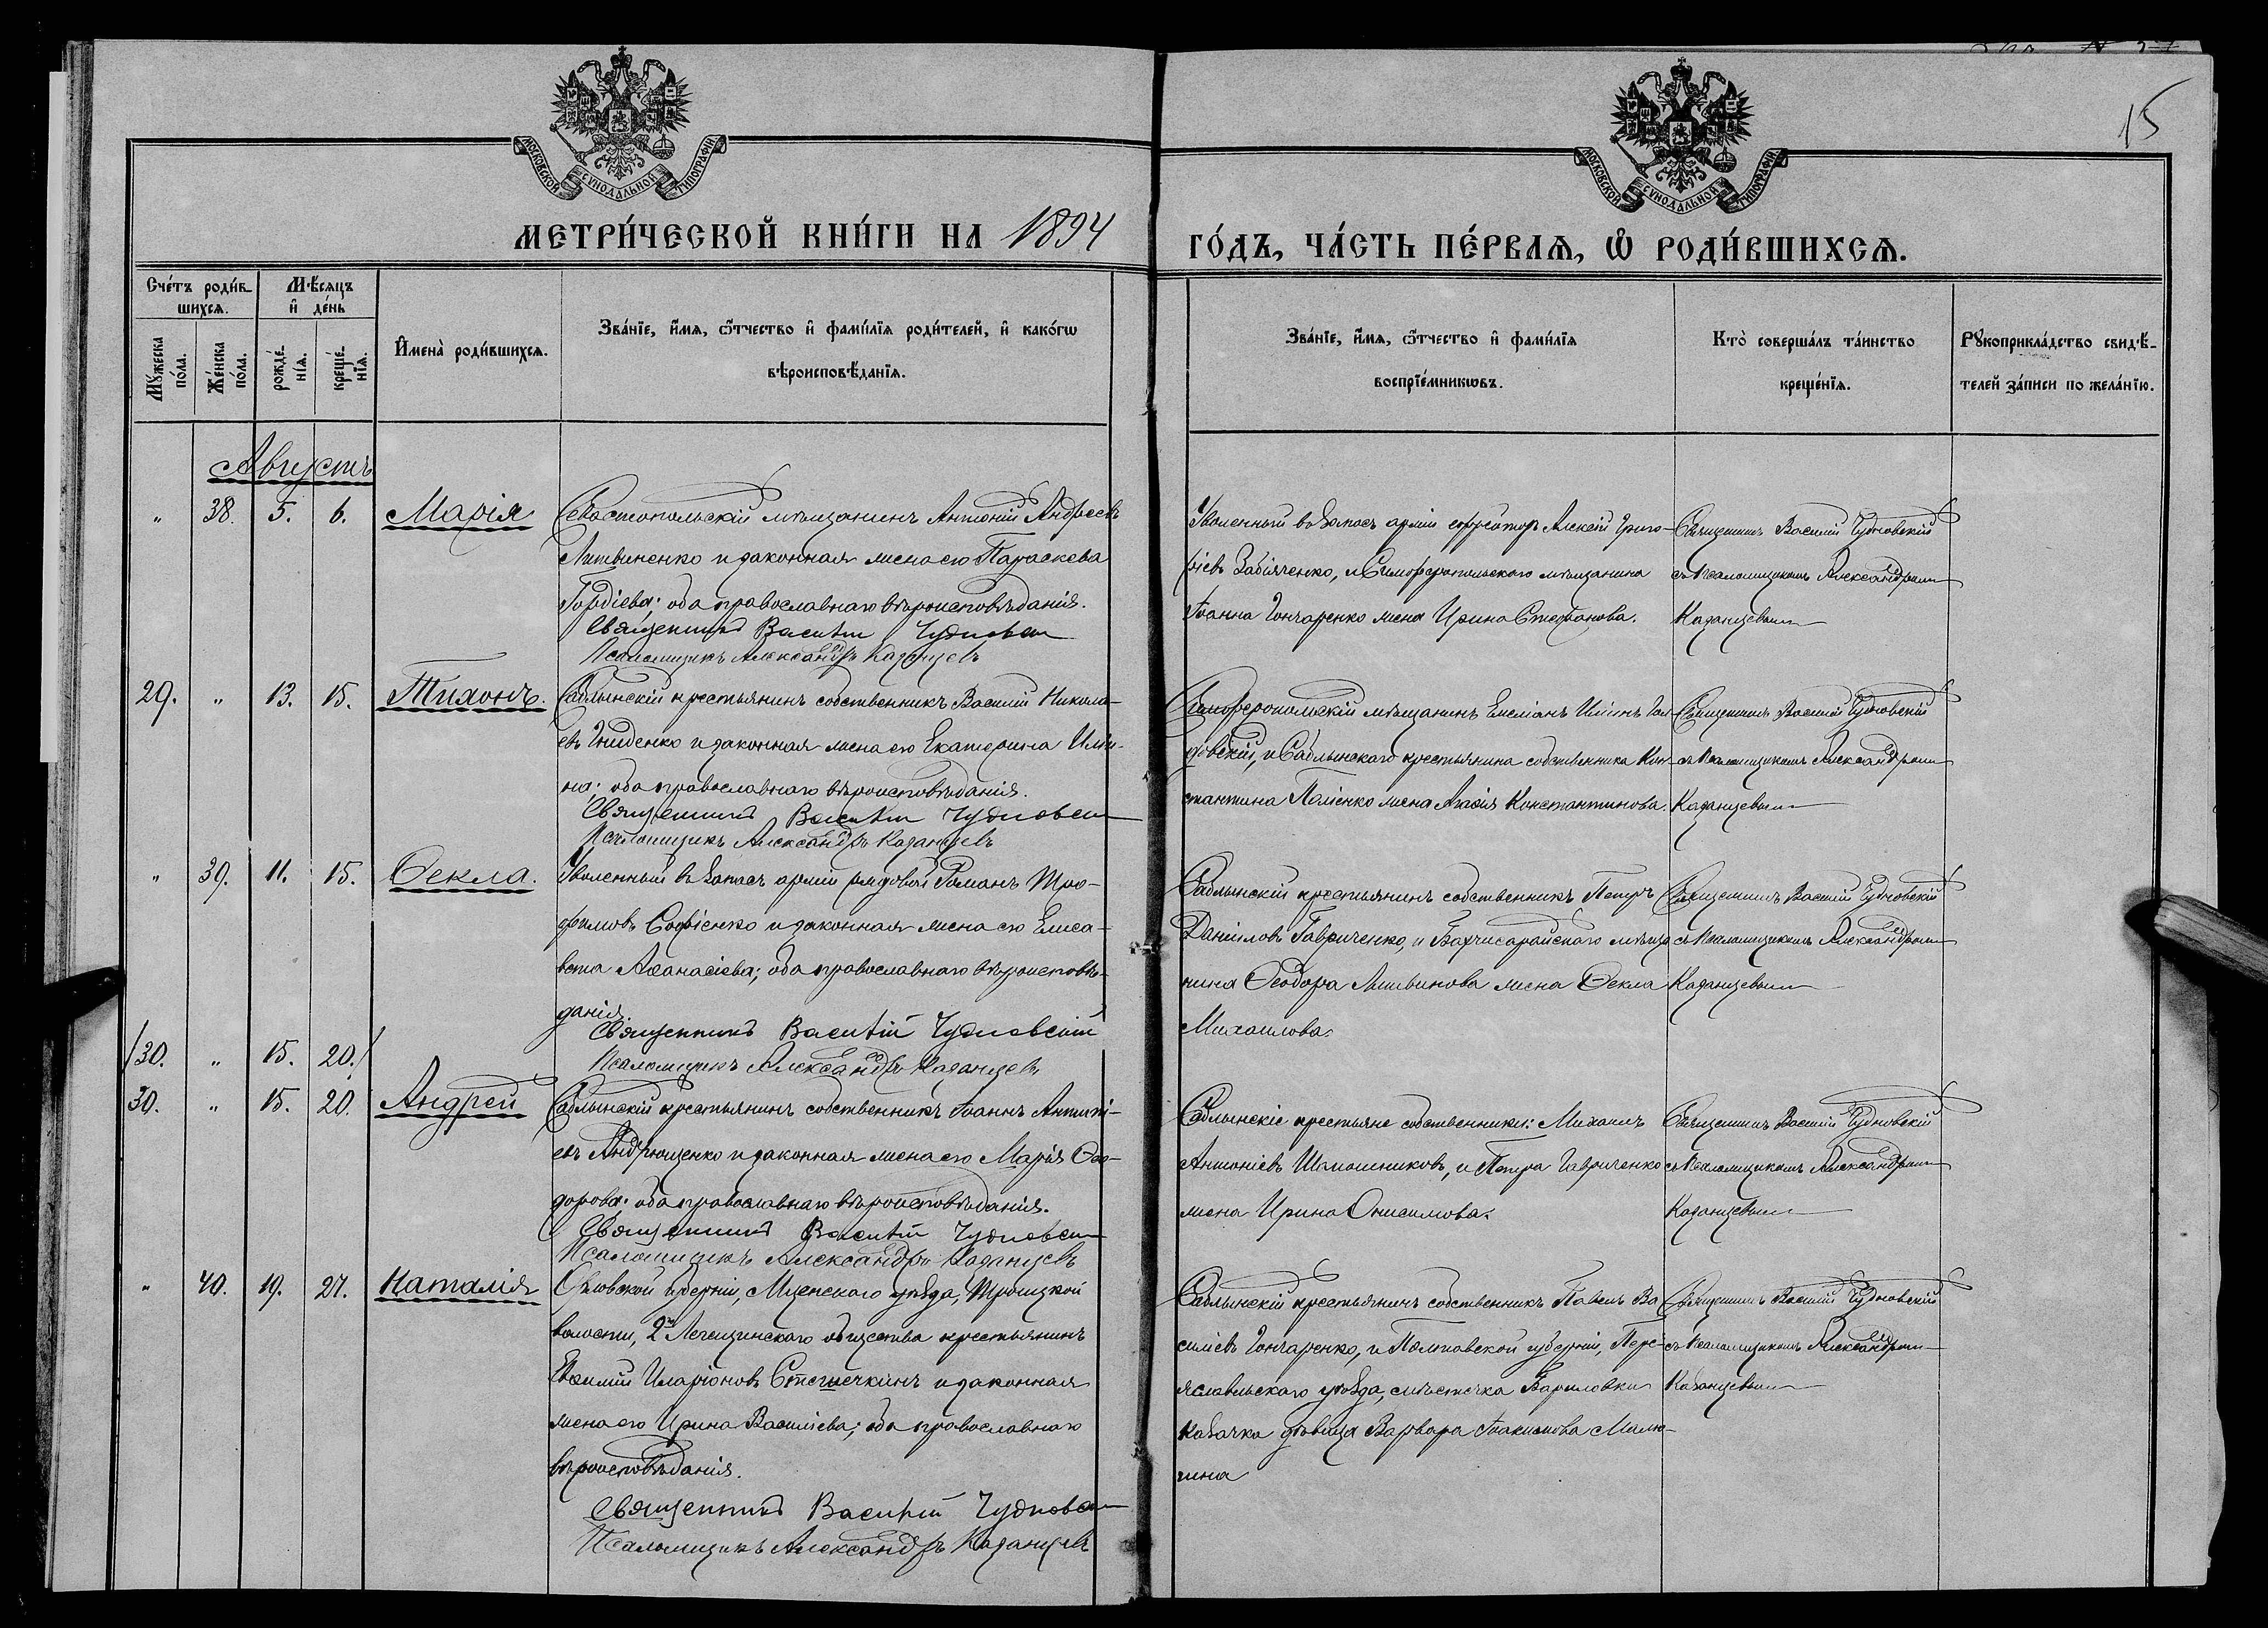 15
МОСКОВСКОЙ СѴНОДАЛЬНОЙ ТИПОГРАФІИ
МОСКОВСКОЙ СѴНОДАЛЬНОЙ ТИПОГРАФІИ
МЕТРИ́ЧЕСКОЙ КНИ́ГИ НА 1894
ГО́ДЪ, ЧА́СТЬ ПЕ́РВАѦ, Ѡ҆ РОДИ́ВШИХСѦ.
Сче́тъ роди́в-
шихсѧ.
Мѣ́сѧцъ
и҆ де́нь
Мꙋ́жеска
по́ла.
Же́нска
по́ла.
рожде́-
нїѧ.
креще́-
нїѧ.
И҆мена̀ роди́вшихсѧ.
Зва́нїе, и҆́мѧ, ѻ҆́тчество и҆ фами́лїѧ роди́телей, и҆ како́гѡ
вѣроисповѣ́данїѧ.
Зва́нїе, и҆́мѧ, ѻ҆́тчество и҆ фами́лїѧ
воспрїе́мникѡвъ.
Кто̀ соверша́лъ та́инство
креще́нїѧ.
Рꙋкоприкла́дство свидѣ́-
телей за́писи по жела́нїю.
Августъ
" 38. 5. 6. Марія
Севастопольскій мѣщанинъ Антоній Андреевъ
Литвиненко и законная жена его Параскева
Гордіева; оба православнаго вѣроисповѣданія.
Священникъ Василій Чудновскій
Псаломщикъ Александръ Казанцевъ
Уволенный въ запасъ арміи ефрейторъ Алексій Григо-
ріевъ Забіяченко, и Симферопольскаго мѣщанина
Іоанна Гончаренко жена Ирина Стефанова.
Священникъ Василій Чудновскій
съ псаломщикомъ Александромъ
Казанцевымъ
29. " 13. 15. Тихонъ.
Саблынскій крестьянинъ собственникъ Василій Никола-
евъ Гниденко и законная жена его Екатерина Иліи-
на; оба православнаго вѣроисповѣданія.
Священникъ Василій Чудновскій
Псаломщикъ Александръ Казанцевъ
Симферопольскій мѣщанинъ Емеліанъ Иліинъ
и Саблынскаго крестьянина собственника Кон-
стантина жена Агафія Константинова.
Священникъ Василій Чудновскій
съ псаломщикомъ Александромъ
Казанцевымъ
" 39. 11. 15. Ѳекла.
Уволенный въ запасъ арміи рядовой Романъ Тро-
фимовъ Софіенко и законная жена его Елиса-
вета Аѳанасіева; оба православнаго вѣроисповѣ-
данія.
Священникъ Василій Чудновскій
Псаломщикъ Александръ Казанцевъ
Саблынскій крестьянинъ собственникъ Петръ
Даніиловъ Гавриченко, и Бахчисарайскаго мѣща-
нина Ѳеодора Литвинова жена Ѳекла
Михаилова.
Священникъ Василій Чудновскій
съ псаломщикомъ Александромъ
Казанцевымъ
/30. " 15. 20./
30. " 15. 20. Андрей
Саблынскій крестьянинъ собственникъ Іоаннъ Антипі-
евъ Андрющенко и законная жена его Марія Ѳео-
дорова; оба православнаго вѣроисповѣданія.
Священникъ Василій Чудновскій
Псаломщикъ Александръ Казанцевъ
Саблынскіе крестьяне собственники: Михаилъ
Антоніевъ Шапошниковъ, и Петра Гавриченко
жена Ирина Онисимова.
Священникъ Василій Чудновскій
съ псаломщикомъ Александромъ
Казанцевымъ
" 40. 19. 27. Наталія
Орловской губерніи, Мценскаго уѣзда, Троицкой
волости, 2го общества крестьянинъ
Евѳимій Иларіоновъ Стегнечкинъ и законная
жена его Ирина Василіева; оба православнаго
вѣроисповѣданія.
Священникъ Василій Чудновскій
Псаломщикъ Александръ Казанцевъ
Саблынскій крестьянинъ собственникъ Павелъ Ва-
силіевъ Гончаренко, и Полтавской губерніи, Пере-
яславльскаго уѣзда, мѣстечка
казачка дѣвица Варвара Іоакимова Малю-
гина
Священникъ Василій Чудновскій
съ псаломщикомъ Александромъ
Казанцевымъ